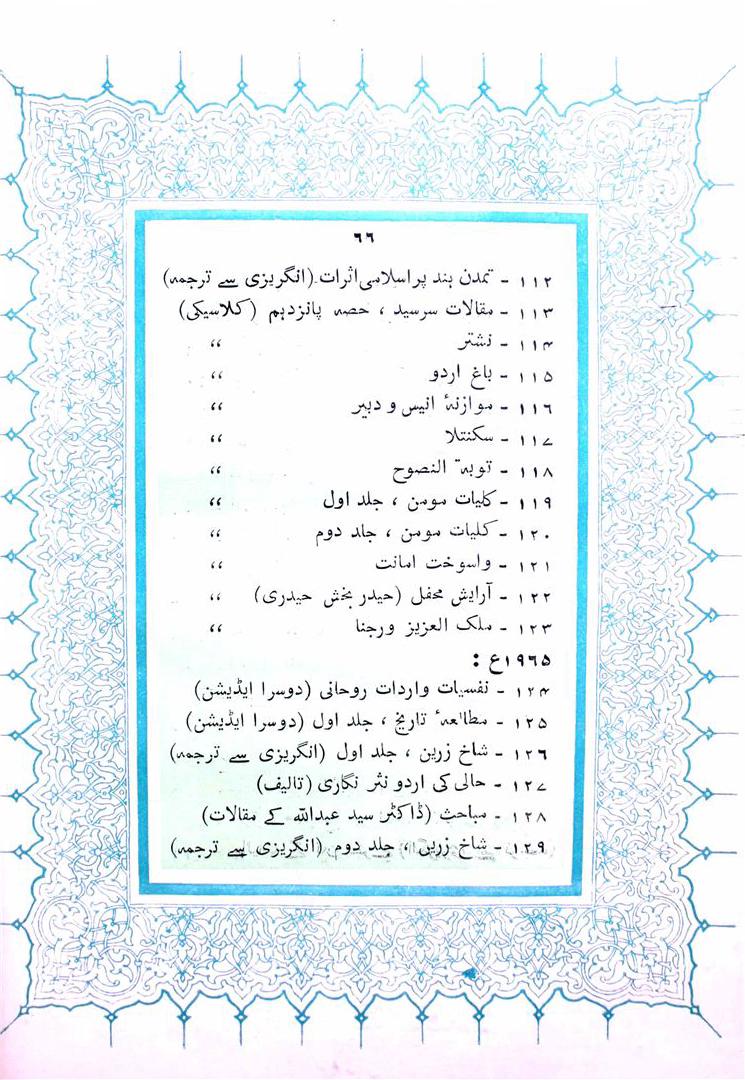 ۶۶
۱۱۲ - تمدن ہند پر اسلامی اثرات (انگریزی سے ترجمہ)
۱۱۳ - مقالات سرسید ، حصہ پانزدہم (کلاسیکی)
۱۱۴ - نشتر ,,
۱۱۵ - باغ اردو ,,
۱۱۶ - موازنۂ انیس و دبیر ,,
۱۱۷ - سکنتلا ,,
۱۱۸ - توبۃ النصوح ,,
۱۱۹ - کلیات مومن ، جلد اول ,,
۱۲۰ - کلیات مومن ، جلد دوم ,,
۱۲۱ - واسوخت امانت ,,
۱۲۲ - آرایش محفل (حیدر بخش حیدری) ,,
۱۲۳ - ملک العزیز ورجنا ,,
۱۹۶۵ع :
۱۲۴ - نفسیات واردات روحانی (دوسرا ایڈیشن)
۱۲۵ - مطالعۂ تاریخ ، جلد اول (دوسرا ایڈیشن)
۱۲۶ - شاخ زریں ، جلد اول (انگریزی سے ترجمہ)
۱۲۷ - حالی کی اردو نثر نگاری (تالیف)
۱۲۸ - مباحث (ڈاکٹر سید عبداللہ کے مقالات)
۱۲۹ - شاخ زریں ، جلد دوم (انگریزی سے ترجمہ)